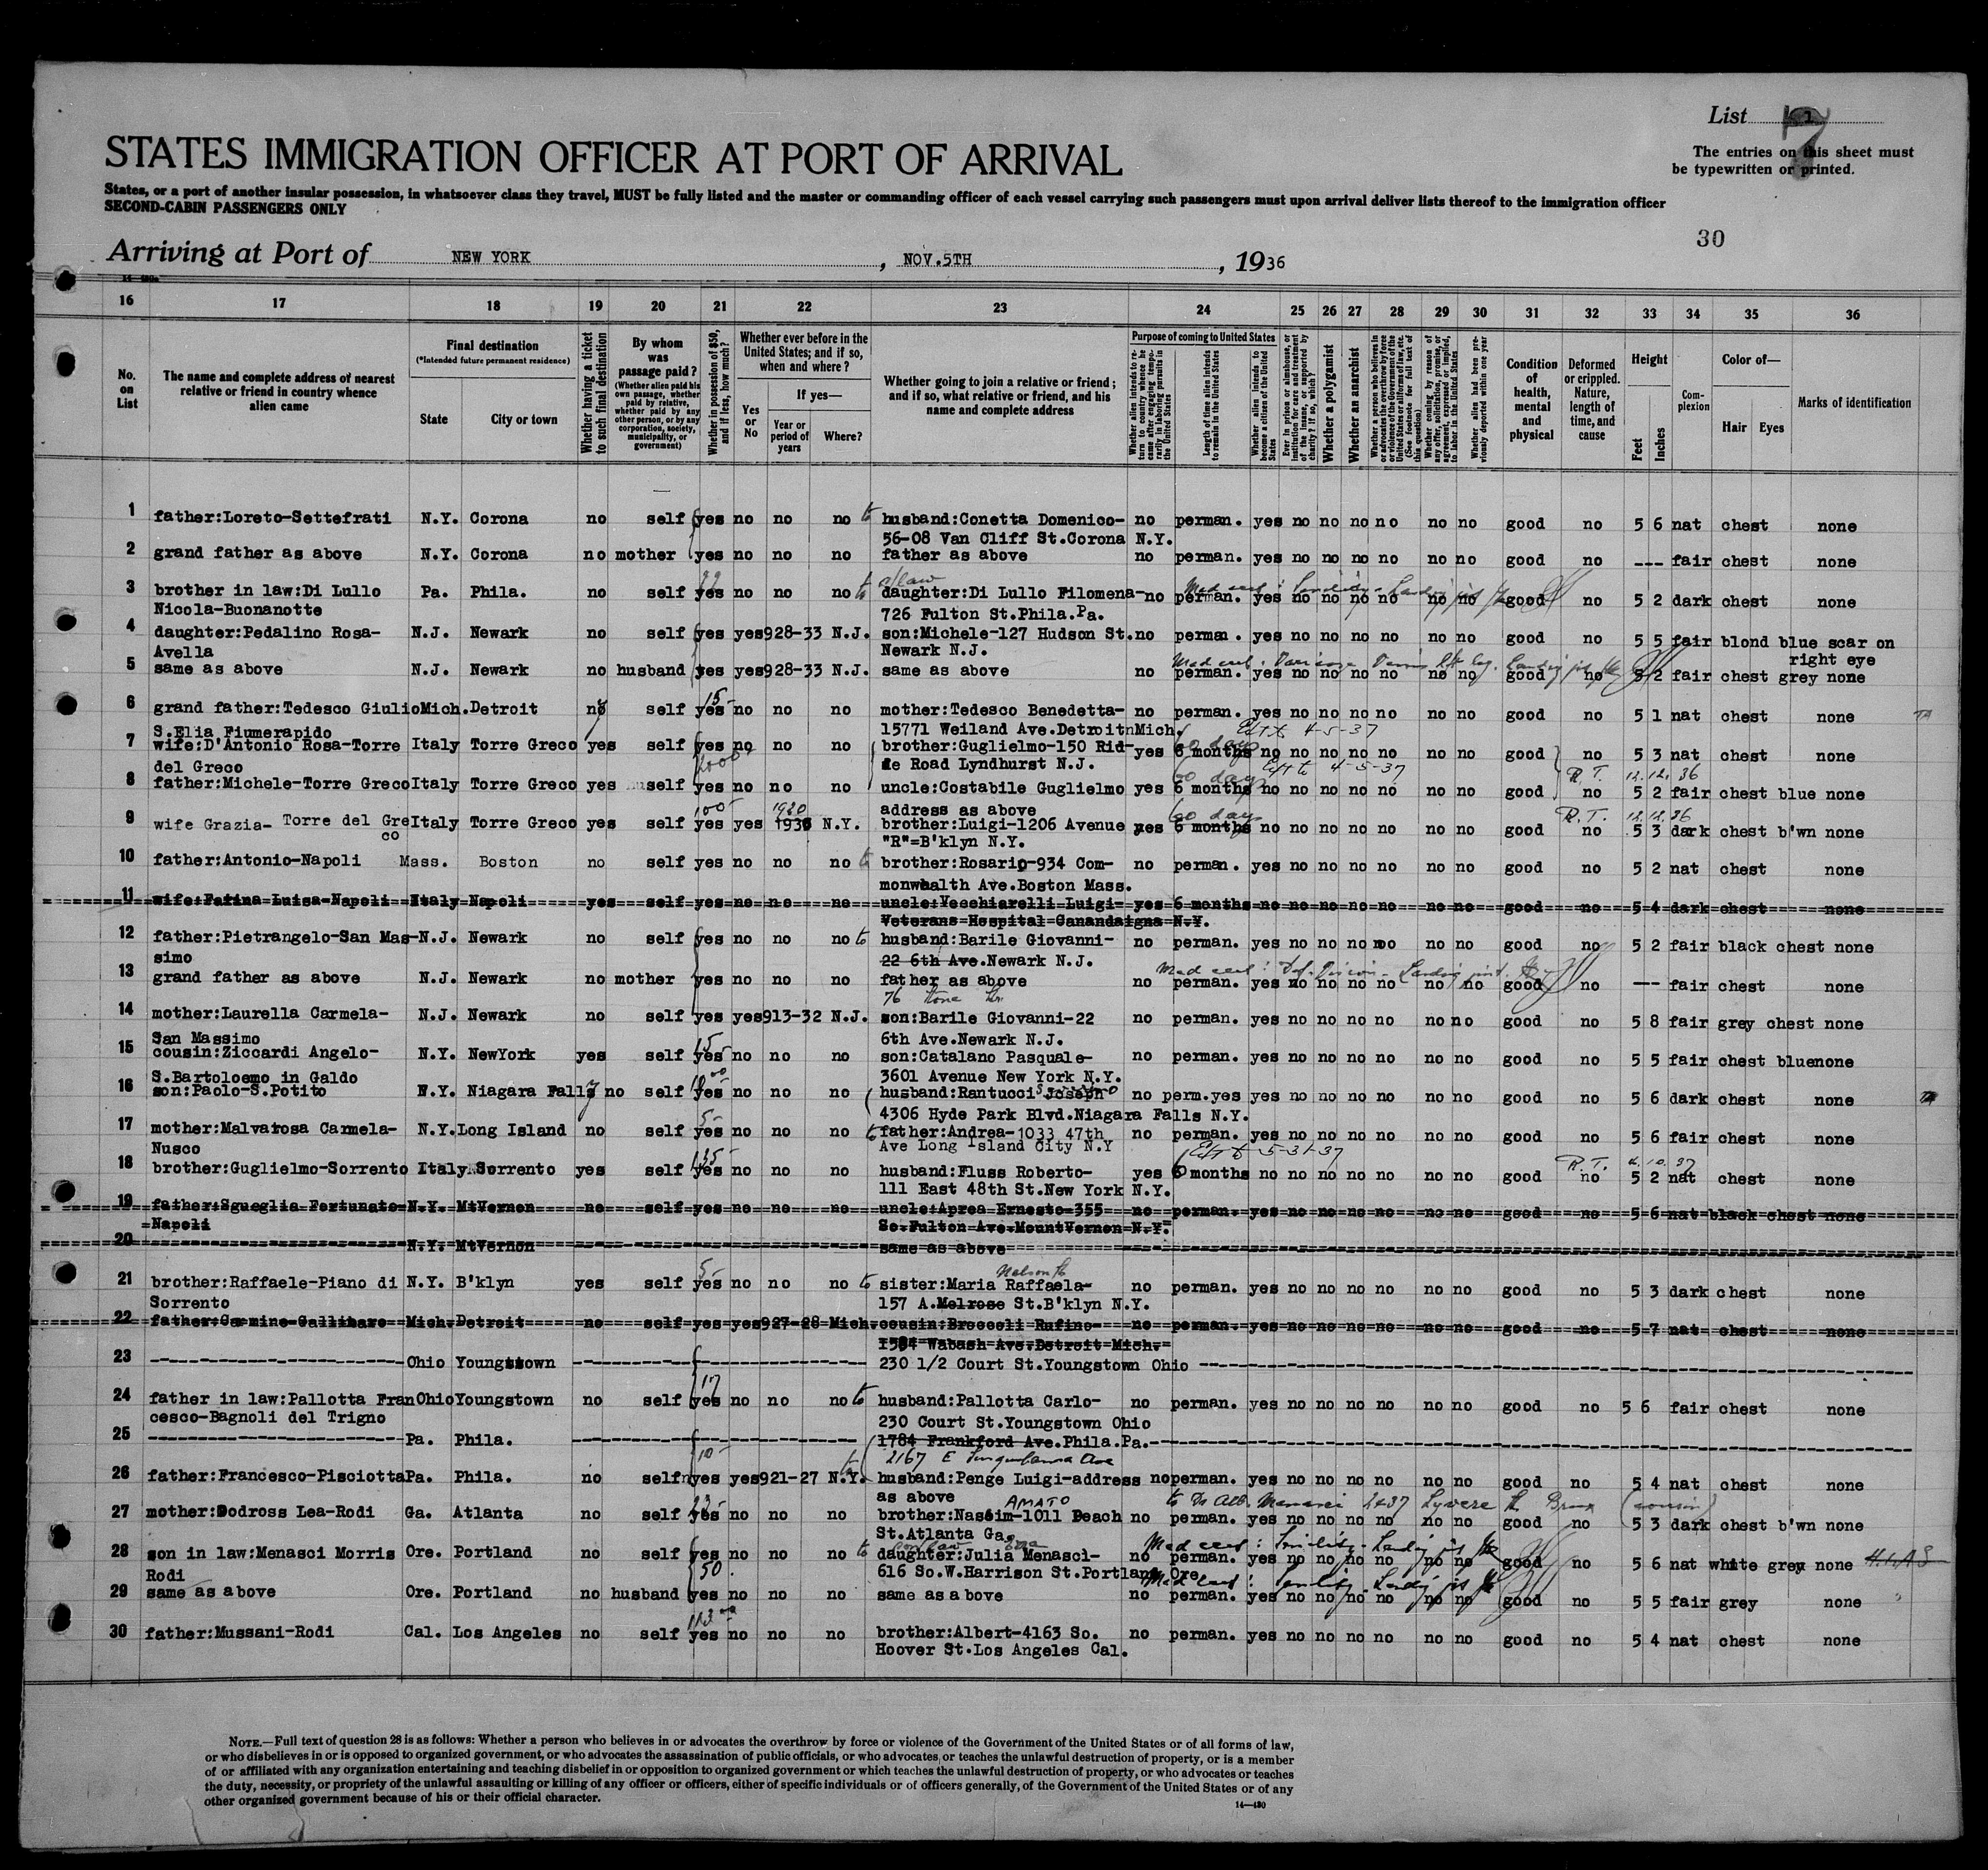 List 1 7
STATES IMMIGRATION OFFICER AT PORT OF ARRIVAL
The entries on this sheet must
be typewritten or printed.
States, or a port of another insular possession, in whatsoever class they travel, MUST be fully listed and the master or commanding officer of each vessel carrying such passengers must upon arrival deliver lists thereof to the immigration officer
SECOND-CABIN PASSENGERS ONLY
30
Arriving at Port of NEW YORK, NOV.5TH, 1936
16 17 18 19 20 21 22 23 24 25 26 27 28 29 30 31 32 33 34 35 36
No. on List
The name and complete address of nearest relative or friend in country whence alien came
Final destination (*Intended future permanent residence)
State City or town
Whether having a ticket to such final destination
By whom was passage paid? (Whether alien paid his own passage, whether paid by relative, whether paid by any other person, or by any corporation, society, municipality, or government)
Whether in possession of $50, and if less, how much?
Whether ever before in the United States; and if so, when and where?
Yes or No
If yes—
Year or period of years Where?
Whether going to join a relative or friend; and if so, what relative or friend, and his name and complete address
Purpose of coming to United States
Whether alien intends to return to country whence he came after engaging temporarily in laboring pursuits in the United States
Length of time alien intends to remain in the United States
Whether alien intends to become a citizen of the United States
Ever in prison or almshouse, or institution for care and treatment of the insane, or supported by charity? If so, which?
Whether a polygamist
Whether an anarchist
Whether a person who believes in or advocates the overthrow by force or violence of the Government of the United States or all forms of law, etc. (See footnote for full text of this question)
Whether coming by reason of any offer, solicitation, promise, or agreement, expressed or implied, to labor in the United States
Whether alien had been previously deported within one year
Condition of health, mental and physical
Deformed or crippled. Nature, length of time, and cause
Height
Feet Inches
Complexion
Color of—
Hair Eyes
Marks of identification
1 father:Loreto-Settefrati N.Y. Corona no self yes no no no to husband:Conetta Domenico- no perman. yes no no no no no no good no 5 6 nat chest none
56-08 Van Cliff St.Corona N.Y.
2 grand father as above N.Y. Corona no mother yes no no no father as above no perman. yes no no no no no no good no --- fair chest none
3 brother in law:Di Lullo Pa. Phila. no self yes no no no to daughter:Di Lullo Filomena- no perman. yes no no no no no no good no 5 2 dark chest none
Nicola-Buonanotte 726 Fulton St.Phila.Pa.
4 daughter:Pedalino Rosa- N.J. Newark no self yes yes 928-33 N.J. son:Michele-127 Hudson St. no perman. yes no no no no no no good no 5 5 fair blond blue scar on
Avella Newark N.J. right eye
5 same as above N.J. Newark no husband yes yes 928-33 N.J. same as above no perman. yes no no no no no no good no 5 2 fair chest grey none
6 grand father:Tedesco Giulio Mich. Detroit no self 15- yes no no no mother:Tedesco Benedetta- no perman. yes no no no no no no good no 5 1 nat chest none
S.Elia Fiumerapido 15771 Weiland Ave.DetroitnMich. Ext to 4-5-37
7 wife:D'Antonio Rosa-Torre Italy Torre Greco yes self yes no no no brother:Guglielmo-150 Rid- yes 60 days 6 months no no no no no no no good no 5 3 nat chest none
del Greco 2000 de Road Lyndhurst N.J. Ext to 4-5-37 R.T. 12.12.36
8 father:Michele-Torre Greco Italy Torre Greco yes self yes no no no uncle:Costabile Guglielmo yes 60 days 6 months no no no no no no no good no 5 2 fair chest blue none
address as above
9 wife Grazia- Torre del Gre Italy Torre Greco yes self 100- yes yes 1920 1936 N.Y. brother:Luigi-1206 Avenue yes 60 days 6 months no no no no no no no good R.T. 12.12.36 no 5 3 dark chest b'wn none
co "R"=B'klyn N.Y.
10 father:Antonio-Napoli Mass. Boston no self yes no no no to brother:Rosario-934 Com- no perman. yes no no no no no no good no 5 2 nat chest none
monwhalth Ave.Boston Mass.
11 wife:Farina Luisa-Napoli Italy Napoli yes self yes no no no uncle:Vecchiarelli Luigi- yes 6 months no no no no no no no good no 5 4 dark chest none
Veterans Hospital Canandaigna N.Y.
12 father:Pietrangelo-San Mas- N.J. Newark no self yes no no no to husband:Barile Giovanni- no perman. yes no no no no no no good no 5 2 fair black chest none
simo 22 6th Ave.Newark N.J.
13 grand father as above N.J. Newark no mother yes no no no father as above no perman. yes no no no no no no good no -- fair chest none
14 mother:Laurella Carmela- N.J. Newark no self yes yes 913-32 N.J. son:Barile Giovanni-22 no perman. yes no no no no no no good no 5 8 fair grey chest none
San Massimo 6th Ave.Newark N.J.
15 cousin:Ziccardi Angelo- N.Y. NewYork yes self 15- yes no no no son:Catalano Pasquale- no perman. yes no no no no no no good no 5 5 fair chest blue none
S.Bartoloemo in Galdo 3601 Avenue New York N.Y.
16 son:Paolo-S.Potito N.Y. Niagara Falls no self yes no no no husband:Rantucci Joseph no perm.yes yes no no no no no no good no 5 6 dark chest none
4306 Hyde Park Blvd.Niagara Falls N.Y.
17 mother:Malvarosa Carmela- N.Y. Long Island no self 5- yes no no no to father:Andrea-1033 47th no perman. yes no no no no no no good no 5 6 fair chest none
Nusco Ave Long Island City N.Y Ext to 5-31-37
18 brother:Guglielmo-Sorrento Italy Sorrento yes self yes no no no husband:Fluss Roberto- yes 6 months no no no no no no no good R.T. no 5 2 nat chest none
111 East 48th St.New York N.Y.
19 father:Sgueglia Fortunato N.Y. MtVernon no self yes no no no uncle:Aprea Ernesto 355 no perman. yes no no no no no no good no 5 6 nat black chest none
-Napoli So.Fulton Ave.MountVernon N.Y.
20 N.Y. MtVernon same as above
21 brother:Raffaele-Piano di N.Y. B'klyn yes self 5- yes no no no to sister:Maria Raffaela- no perman. yes no no no no no no good no 5 3 dark chest none
Sorrento 157 A.Melrose St.B'klyn N.Y.
22 father:Carmine Gallinaro Mich. Detroit no self yes yes 927-28 Mich. cousin:Broccoli Rufino- no perman. yes no no no no no no good no 5 7 nat chest none
1584 Wabash Ave.Detroit Mich.
23 Ohio Youngstown 230 1/2 Court St.Youngstown Ohio
24 father in law:Pallotta Fran Ohio Youngstown no self 17 yes no no no to husband:Pallotta Carlo- no perman. yes no no no no no no good no 5 6 fair chest none
cesco-Bagnoli del Trigno 230 Court St.Youngstown Ohio
25 Pa. Phila. 1784 Frankford Ave.Phila.Pa.
26 father:Francesco-Pisciotta Pa. Phila. no self 10- yes yes 921-27 N.Y. husband:Penge Luigi-address no perman. yes no no no no no no good no 5 4 nat chest none
as above AMATO
27 mother:Dodross Lea-Rodi Ga. Atlanta no self yes no no no brother:Nassim-1011 Peach no perman. yes no no no no no no good no 5 3 dark chest b'wn none
St.Atlanta Ga.
28 son in law:Menasci Morris Ore. Portland no self yes no no no to daughter:Julia Menasci- no perman. yes no no no no no no good no 5 6 nat white grey none H.I.A.S
Rodi 50. 616 So.W.Harrison St.Portland Ore.
29 same as above Ore. Portland no husband yes no no no same as above no perman. yes no no no no no no good no 5 5 fair grey none
30 father:Mussani-Rodi Cal. Los Angeles no self yes no no no brother:Albert-4163 So. no perman. yes no no no no no no good no 5 4 nat chest none
Hoover St.Los Angeles Cal.
NOTE.—Full text of question 28 is as follows: Whether a person who believes in or advocates the overthrow by force or violence of the Government of the United States or of all forms of law,
or who disbelieves in or is opposed to organized government, or who advocates the assassination of public officials, or who advocates or teaches the unlawful destruction of property, or is a member
of or affiliated with any organization entertaining and teaching disbelief in or opposition to organized government or which teaches the unlawful destruction of property, or who advocates or teaches
the duty, necessity, or propriety of the unlawful assaulting or killing of any officer or officers, either of specific individuals or of officers generally, of the Government of the United States or of any
other organized government because of his or their official character.
14—480